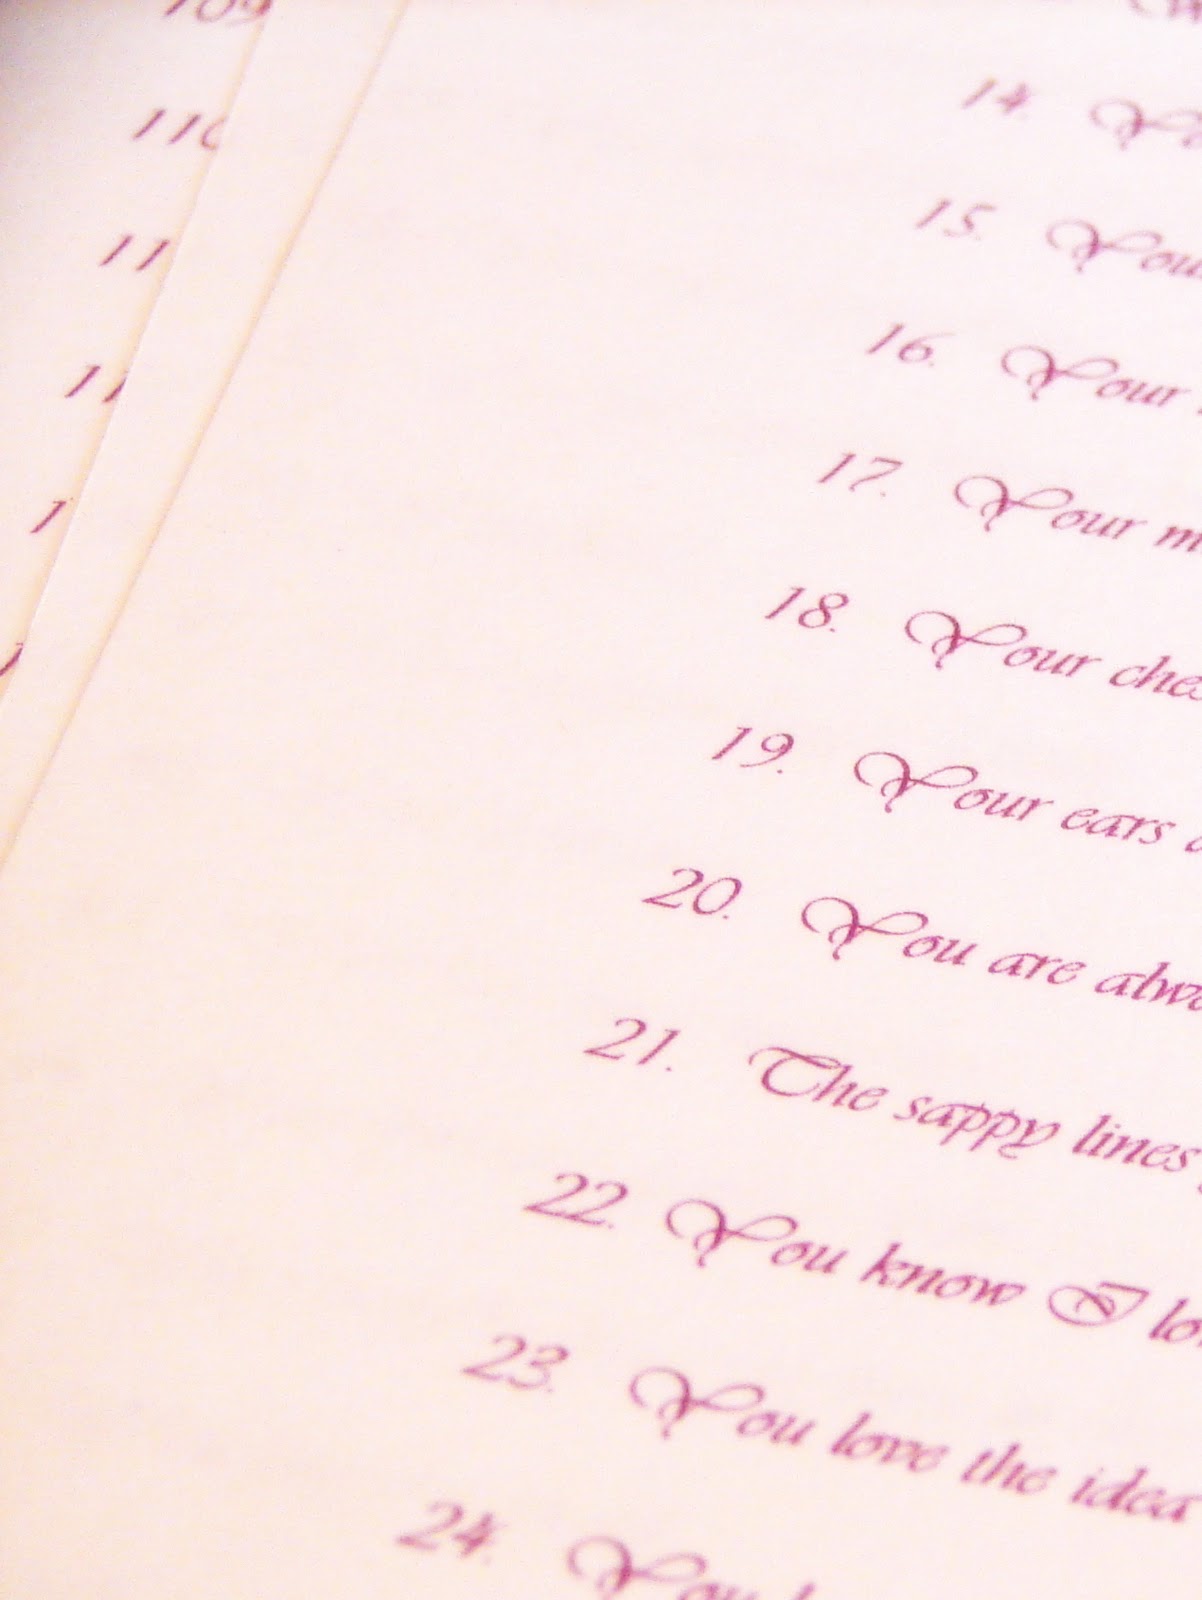 109
110
11
11
1
1
14.
15. You
16. Your
17. Your m
18. Your ches
19. Your ears
20. You are alwa
21. The sappy lines
22. You know I lo
23. You love the idea
24. You